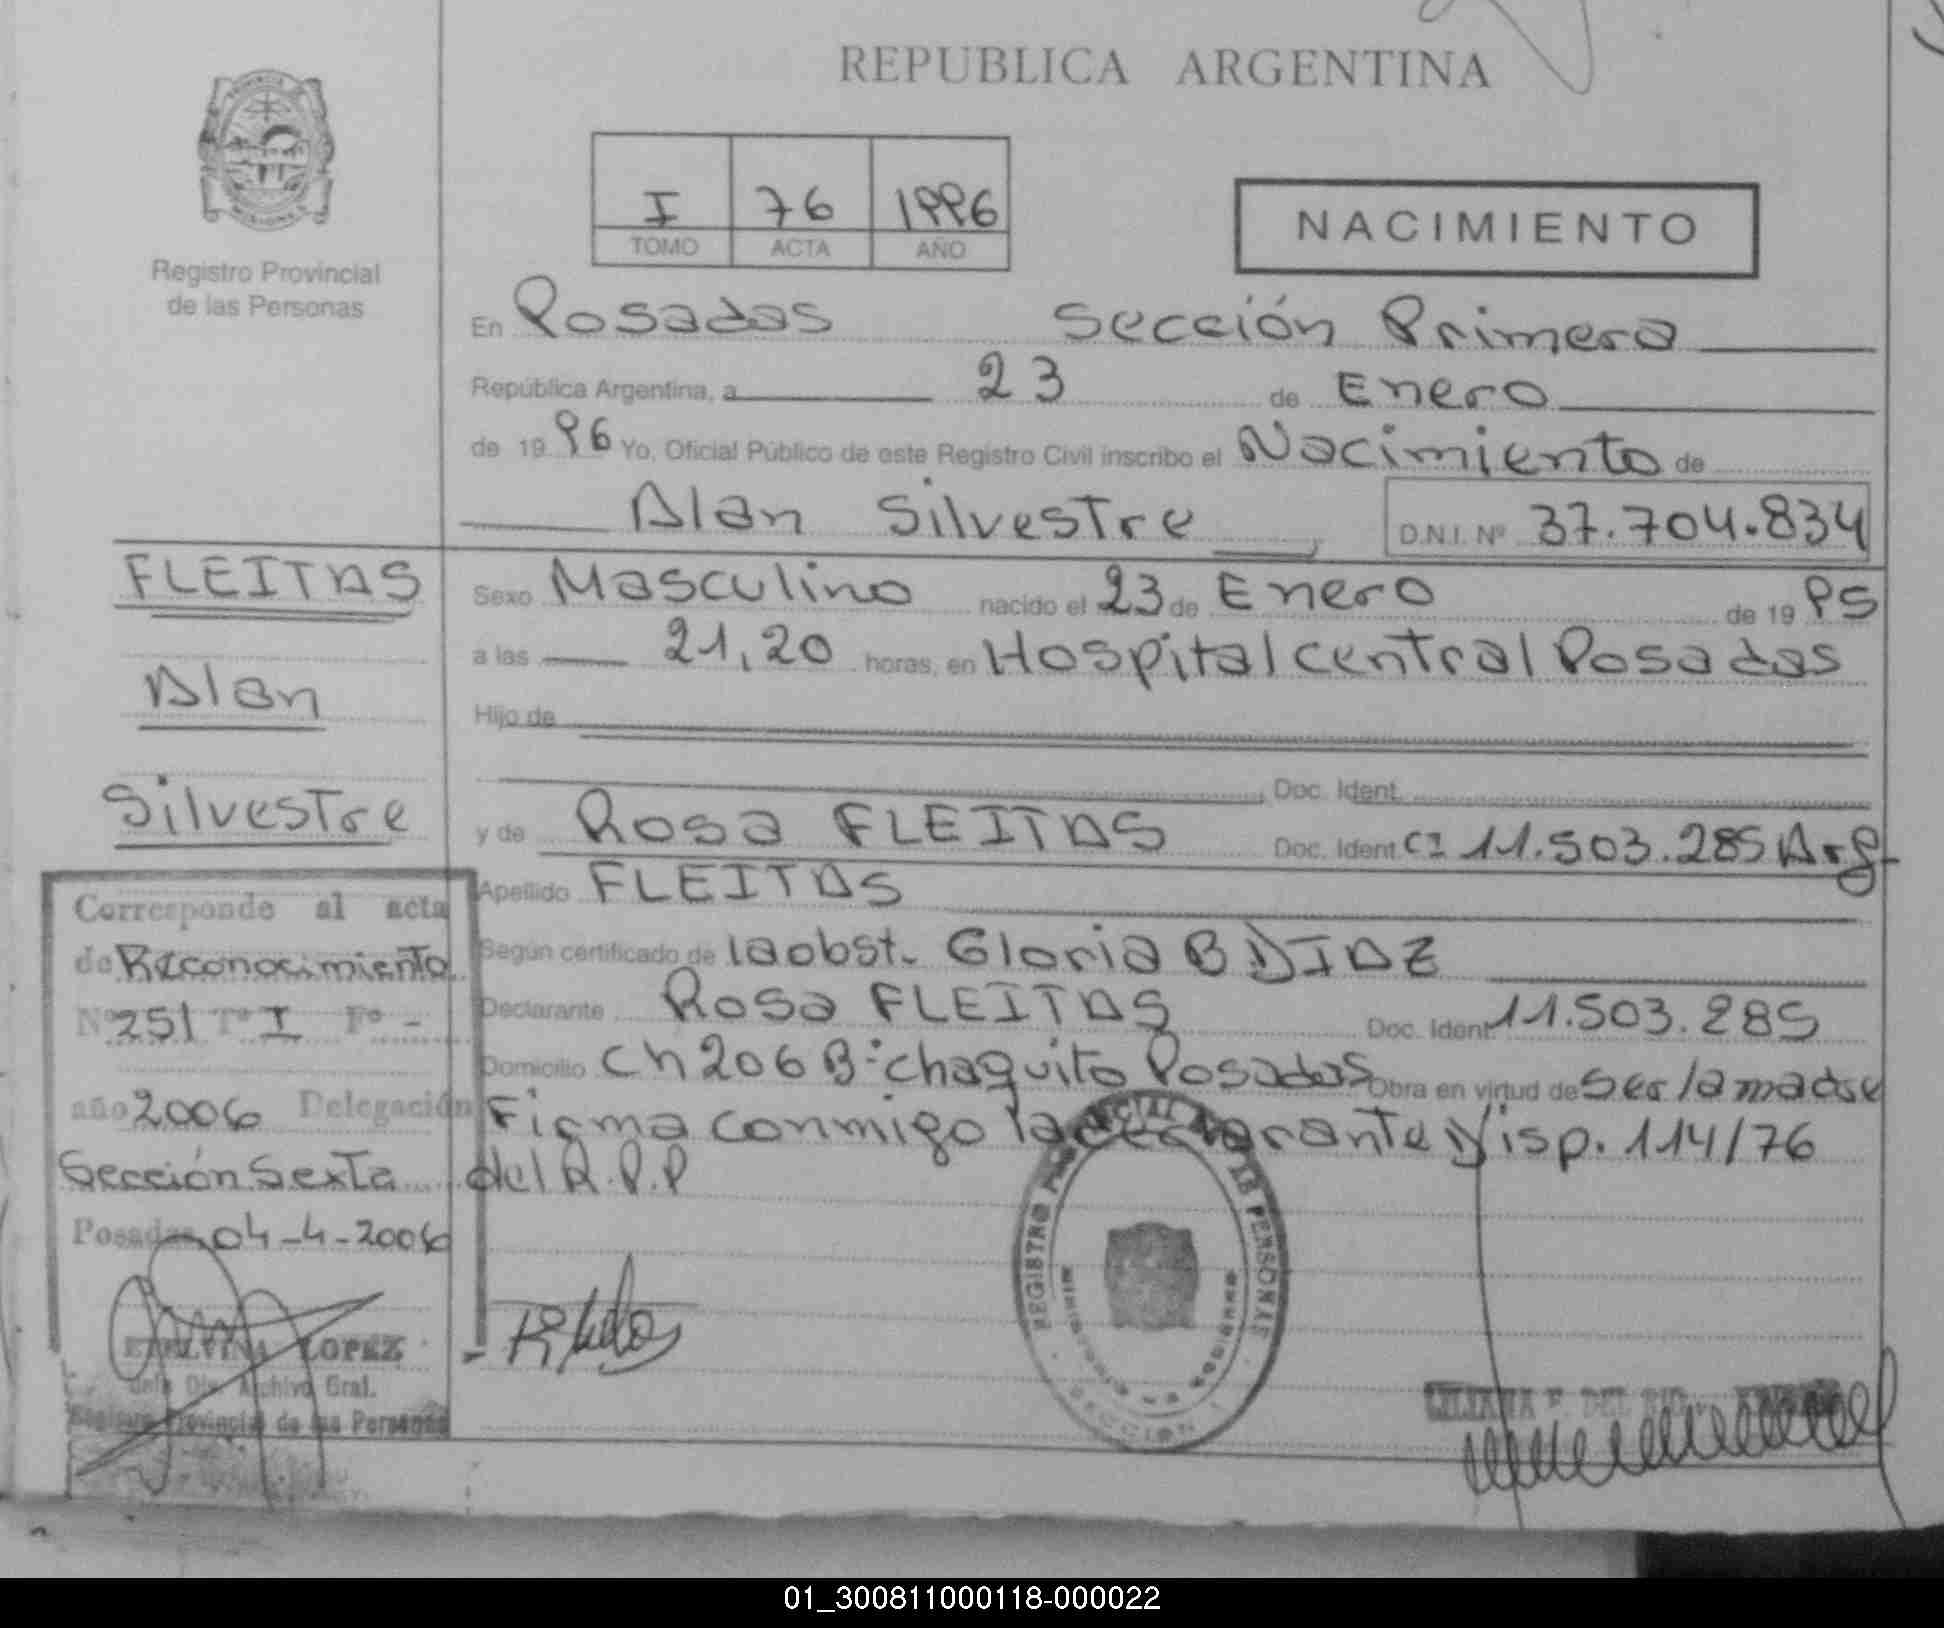 REPUBLICA ARGENTINA
I 76 1996
TOMO ACTA AÑO
NACIMIENTO
Registro Provincial
de las Personas
En Posadas Sección Primera
República Argentina, a 23 de Enero
de 19 96 Yo, Oficial Público de este Registro Civil inscribo el Nacimiento de
Alan Silvestre, D.N.I. Nº 37.704.834
FLEITAS
Alan
Silvestre
Sexo Masculino nacido el 23 de Enero de 19 95
a las 21,20 horas, en Hospital central Posadas
Hijo de
Doc. Ident.
y de Rosa FLEITAS Doc. Ident. CI 11.503.285 Arg
Apellido FLEITAS
Según certificado de la obst. Gloria B DIAZ
Declarante Rosa FLEITAS Doc. Ident. 11.503.285
Domicilio Ch 206 B: chaquito Posadas Obra en virtud de ser la madre
Firma conmigo la declarante Disp. 114/76
del R.P.P
Corresponde al acta
de Reconocimiento
Nº 251 Tº I Fº -
año 2006 Delegación
Sección Sexta
Posadas 04-4-2006
LOPEZ
Archivo Gral.
Registro Provincial de las Personas
REGISTRO PROVINCIAL DE LAS PERSONAS
01_300811000118-000022